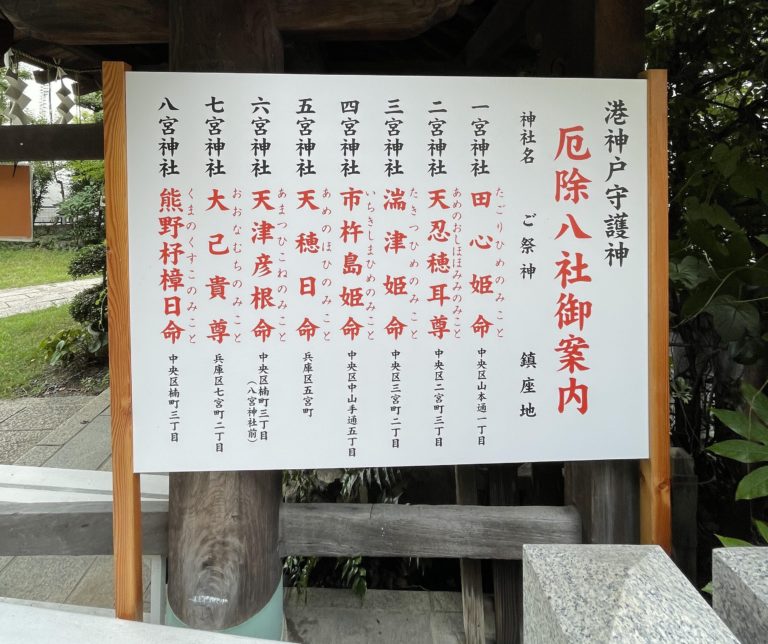 港神戸守護神
厄除八社御案内
神社名 ご祭神 鎮座地
一宮神社 田心姫命 たごりひめのみこと 中央区山本通一丁目
二宮神社 天忍穂耳尊 あめのおしほほみみのみこと 中央区二宮町三丁目
三宮神社 湍津姫命 たきつひめのみこと 中央区三宮町二丁目
四宮神社 市杵島姫命 いちきしまひめのみこと 中央区中山手通五丁目
五宮神社 天穂日命 あめのほひのみこと 兵庫区五宮町
六宮神社 天津彦根命 あまつひこねのみこと 中央区楠町三丁目
(八宮神社前)
七宮神社 大己貴尊 おおなむちのみこと 兵庫区七宮町二丁目
八宮神社 熊野杼樟日命 くまのくすこのみこと 中央区楠町三丁目